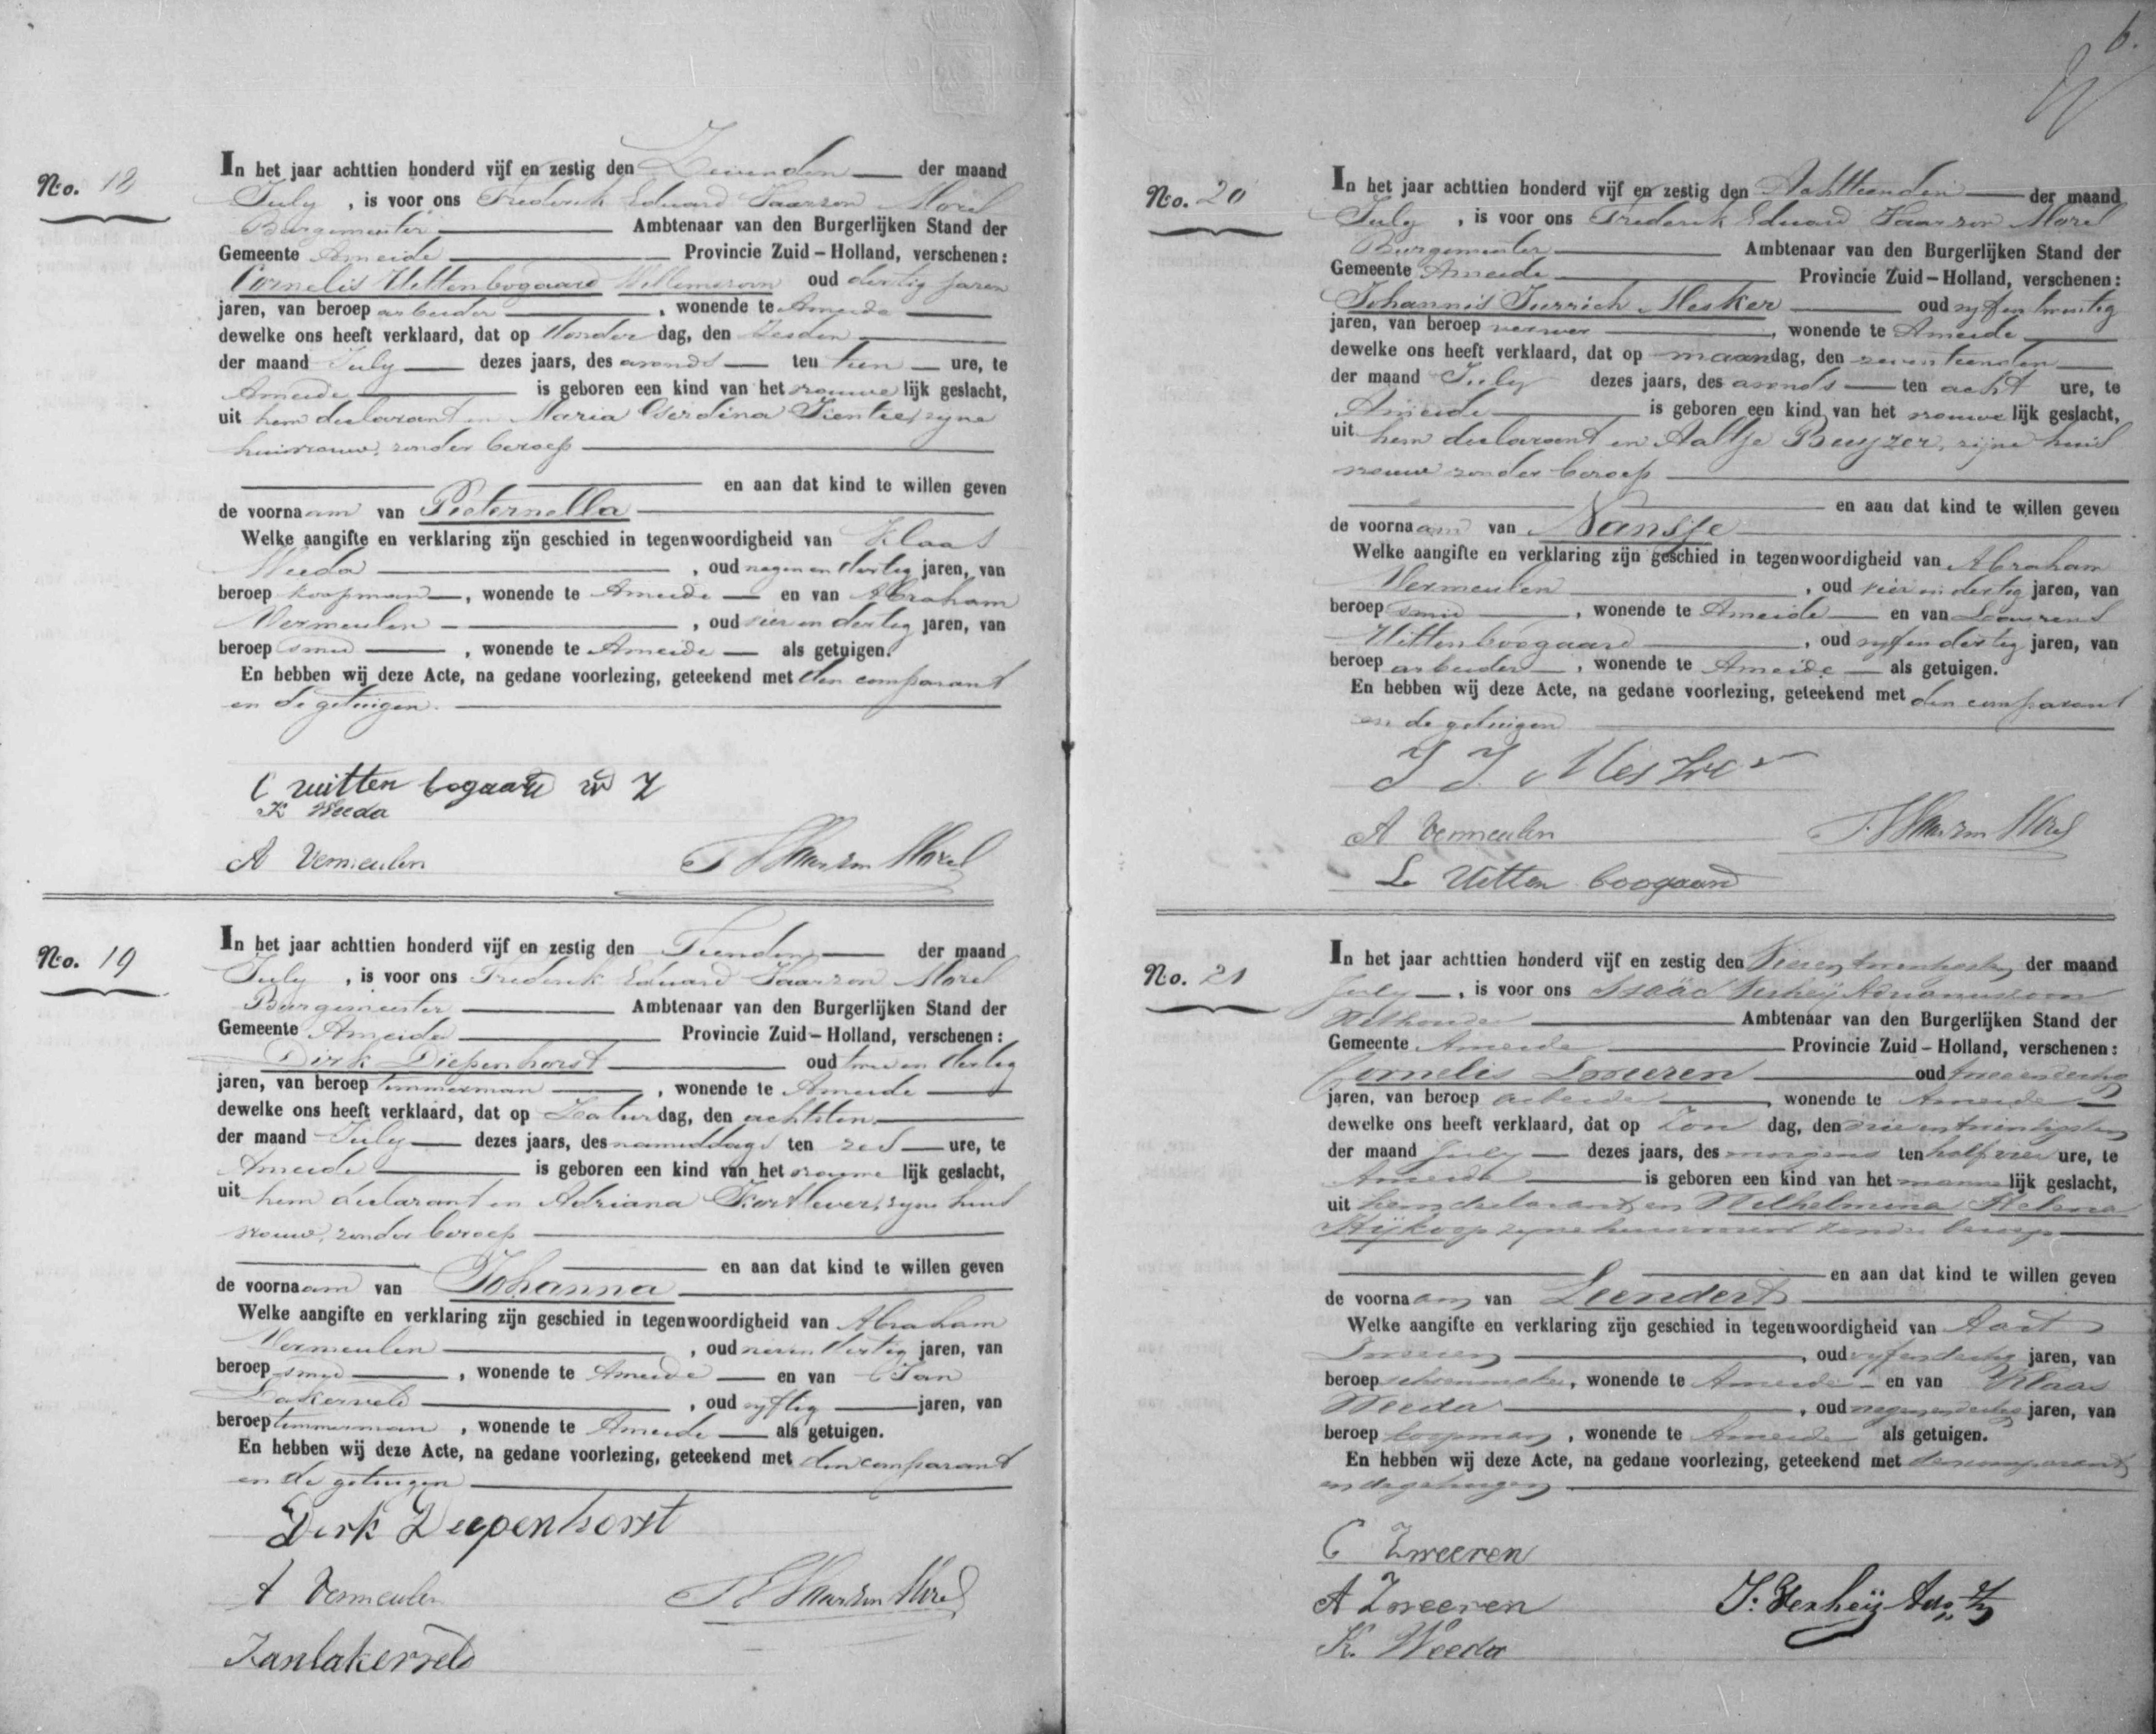 No. 18
In het jaar achttien honderd vijf en zestig den Zevenden der maand
July , is voor ons Frederik Eduard Haarzon Morel
Burgemeester Ambtenaar van den Burgerlijken Stand der
Gemeente Ameide Provincie Zuid-Holland, verschenen:
Cornelis Uittenbogaard Willemszoon oud dertig jaren
jaren, van beroep arbeider , wonende te Ameide
dewelke ons heeft verklaard, dat op donder dag, den zesden
der maand July dezes jaars, des avonds ten tien ure, te
Ameide is geboren een kind van het vrouwe lijk geslacht,
uit hem declarant en Maria Gerdina zyne
huisvrouw, zonder beroep
en aan dat kind te willen geven
de voornaam van Pieternella
Welke aangifte en verklaring zijn geschied in tegenwoordigheid van Klaas
Weeda , oud negen en dertig jaren, van
beroep koopman , wonende te Ameide en van Abraham
Vermeulen , oud vier en dertig jaren, van
beroep smid , wonende te Ameide als getuigen.
En hebben wij deze Acte, na gedane voorlezing, geteekend met den comparant
en de getuigen.
C uitten bogaard w Z
K Weeda
A Vermeulen
F E Haarzon Morel
No. 19
In het jaar achttien honderd vijf en zestig den Tienden der maand
July , is voor ons Frederik Eduard Haarzon Morel
Burgemeester Ambtenaar van den Burgerlijken Stand der
Gemeente Ameide Provincie Zuid-Holland, verschenen:
Dirk Diepenhorst oud twee en dertig
jaren, van beroep timmerman , wonende te Ameide
dewelke ons heeft verklaard, dat op Zatur dag, den achtsten
der maand July dezes jaars, des namiddags ten zes ure, te
Ameide is geboren een kind van het vrouwe lijk geslacht,
uit hem declarant en Adriana Kortlever, zyne huis
vrouw, zonder beroep
en aan dat kind te willen geven
de voornaam van Johanna
Welke aangifte en verklaring zijn geschied in tegenwoordigheid van Abraham
Vermeulen , oud dertig jaren, van
beroep smid , wonende te Ameide en van Jan
Lakerveld , oud vyftig jaren, van
beroep timmerman , wonende te Ameide als getuigen.
En hebben wij deze Acte, na gedane voorlezing, geteekend met den comparant
en de getuigen
Dirk Diepenhorst
A Vermeulen
F E Haarzon Morel
Jan lakerveld
6.
No. 20
In het jaar achttien honderd vijf en zestig den Achttienden der maand
July , is voor ons Frederik Eduard Haarzon Morel
Burgemeester Ambtenaar van den Burgerlijken Stand der
Gemeente Ameide Provincie Zuid-Holland, verschenen:
Johannis Jurrich Mesker oud vyf en twintig
jaren, van beroep verwer , wonende te Ameide
dewelke ons heeft verklaard, dat op maandag, den zeventienden
der maand July dezes jaars, des avonds ten acht ure, te
Ameide is geboren een kind van het vrouwe lijk geslacht,
uit hem declarant en Aaltje Beyzer, zijne huis
vrouw zonder beroep
en aan dat kind te willen geven
de voornaam van Nansje
Welke aangifte en verklaring zijn geschied in tegenwoordigheid van Abraham
Vermeulen , oud vier en dertig jaren, van
beroep smid , wonende te Ameide en van Lourens
Uittenboogaard , oud vyf en dertig jaren, van
beroep arbeider , wonende te Ameide als getuigen.
En hebben wij deze Acte, na gedane voorlezing, geteekend met den comparant
en de getuigen
J J Mesker
A Vermeulen
F E Haarzon Morel
L Uitten boogaard
No. 21
In het jaar achttien honderd vijf en zestig den Vierentwintigsten der maand
July , is voor ons Isaäc Verheij Adrianuszoon
Wethouder Ambtenaar van den Burgerlijken Stand der
Gemeente Ameide Provincie Zuid-Holland, verschenen:
Cornelis Zweeren oud tweeendertig
jaren, van beroep arbeider , wonende te Ameide
dewelke ons heeft verklaard, dat op Zon dag, den drieentwintigsten
der maand July dezes jaars, des morgens ten half vier ure, te
Ameide is geboren een kind van het manne lijk geslacht,
uit hem declarant en Wilhelmina Helena
Rijkoop zyne huisvrouw zonder beroep
en aan dat kind te willen geven
de voornaam van Leendert
Welke aangifte en verklaring zijn geschied in tegenwoordigheid van Aart
Zweeren , oud vyfendertig jaren, van
beroep schoenmaker , wonende te Ameide en van Klaas
Weeda , oud negenendertig jaren, van
beroep koopman , wonende te Ameide als getuigen.
En hebben wij deze Acte, na gedane voorlezing, geteekend met den comparant
en de getuigen
C Zweeren
A Zweeren
J. Verheij Adr. Zn
K. Weeda